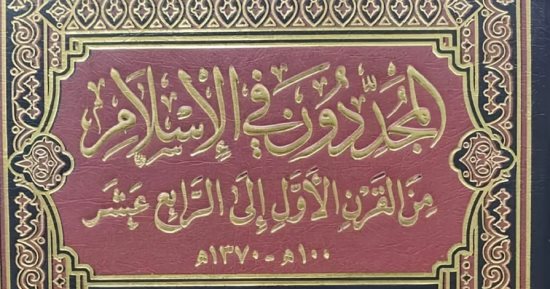 المُجَدِّدُونَ فِي الإِسْلَامِ
مِنَ القَرْنِ الأَوَّلِ إِلَى الرَّابِعِ عَشَرَ
١٠٠هـ - ١٣٧٠هـ